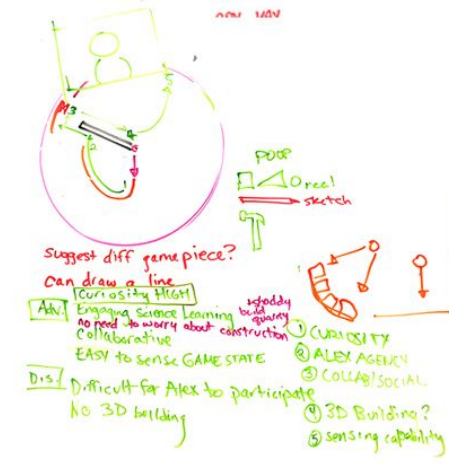 3
4
2
5
POOP
reel
sketch
suggest diff gamepiece?
can draw a line
Curiosity HIGH
Adv.
Engaging Science Learning
+shoddy build quality
no need to worry about construction
Collaborative
EASY to sense GAME STATE
Dis.
Difficult for Alex to participate
No 3D building
1
① CURIOSITY
② ALEX AGENCY
③ COLLAB/SOCIAL
④ 3D Building?
⑤ sensing capability